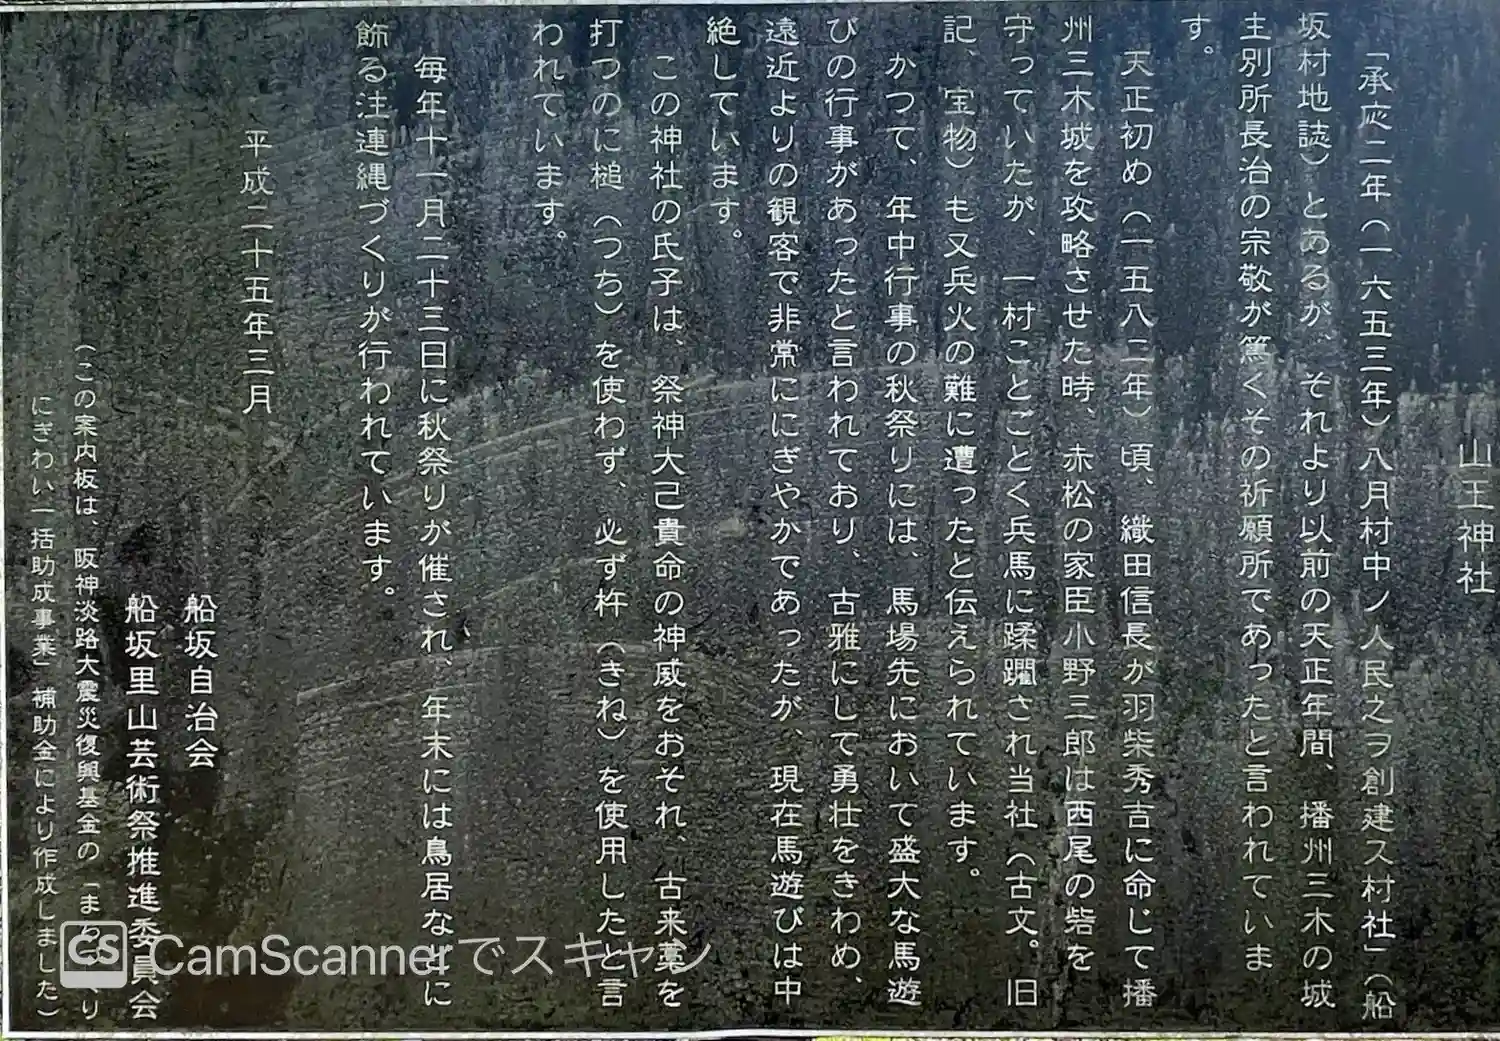 山王神社
「承応二年(一六五三年)八月村中ノ人民之ヲ創建ス村社」(船
坂村地誌)とあるが、それより以前の天正年間、播州三木の城
主別所長治の宗敬が篤くその祈願所であったと言われていま
す。
天正初め(一五八二年)頃、織田信長が羽柴秀吉に命じて播
州三木城を攻略させた時、赤松の家臣小野三郎は西尾の砦を
守っていたが、一村ことごとく兵馬に蹂躙され当社(古文。旧
記、宝物)も又兵火の難に遭ったと伝えられています。
かつて、年中行事の秋祭りには、馬場先において盛大な馬遊
びの行事があったと言われており、古雅にして勇壮をきわめ、
遠近よりの観客で非常ににぎやかであったが、現在馬遊びは中
絶しています。
この神社の氏子は、祭神大己貴命の神威をおそれ、古来藁を
打つのに槌(つち)を使わず、必ず杵(きね)を使用したと言
われています。
毎年十一月二十三日に秋祭りが催され、年末には鳥居などに
飾る注連縄づくりが行われています。
平成二十五年三月
船坂自治会
船坂里山芸術祭推進委員会
(この案内板は、阪神淡路大震災復興基金の「まちづくり
にぎわい一括助成事業」補助金により作成しました)
CS CamScannerでスキャン